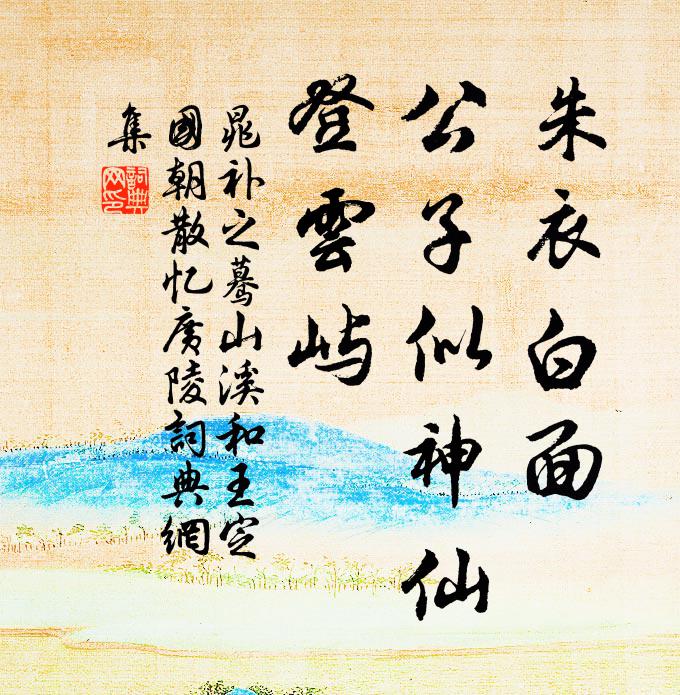 朱衣白面
公子似神仙
登雲屿
晁补之蓦山溪和王定
國朝散忆廣陵詞典網
集
詞典網印